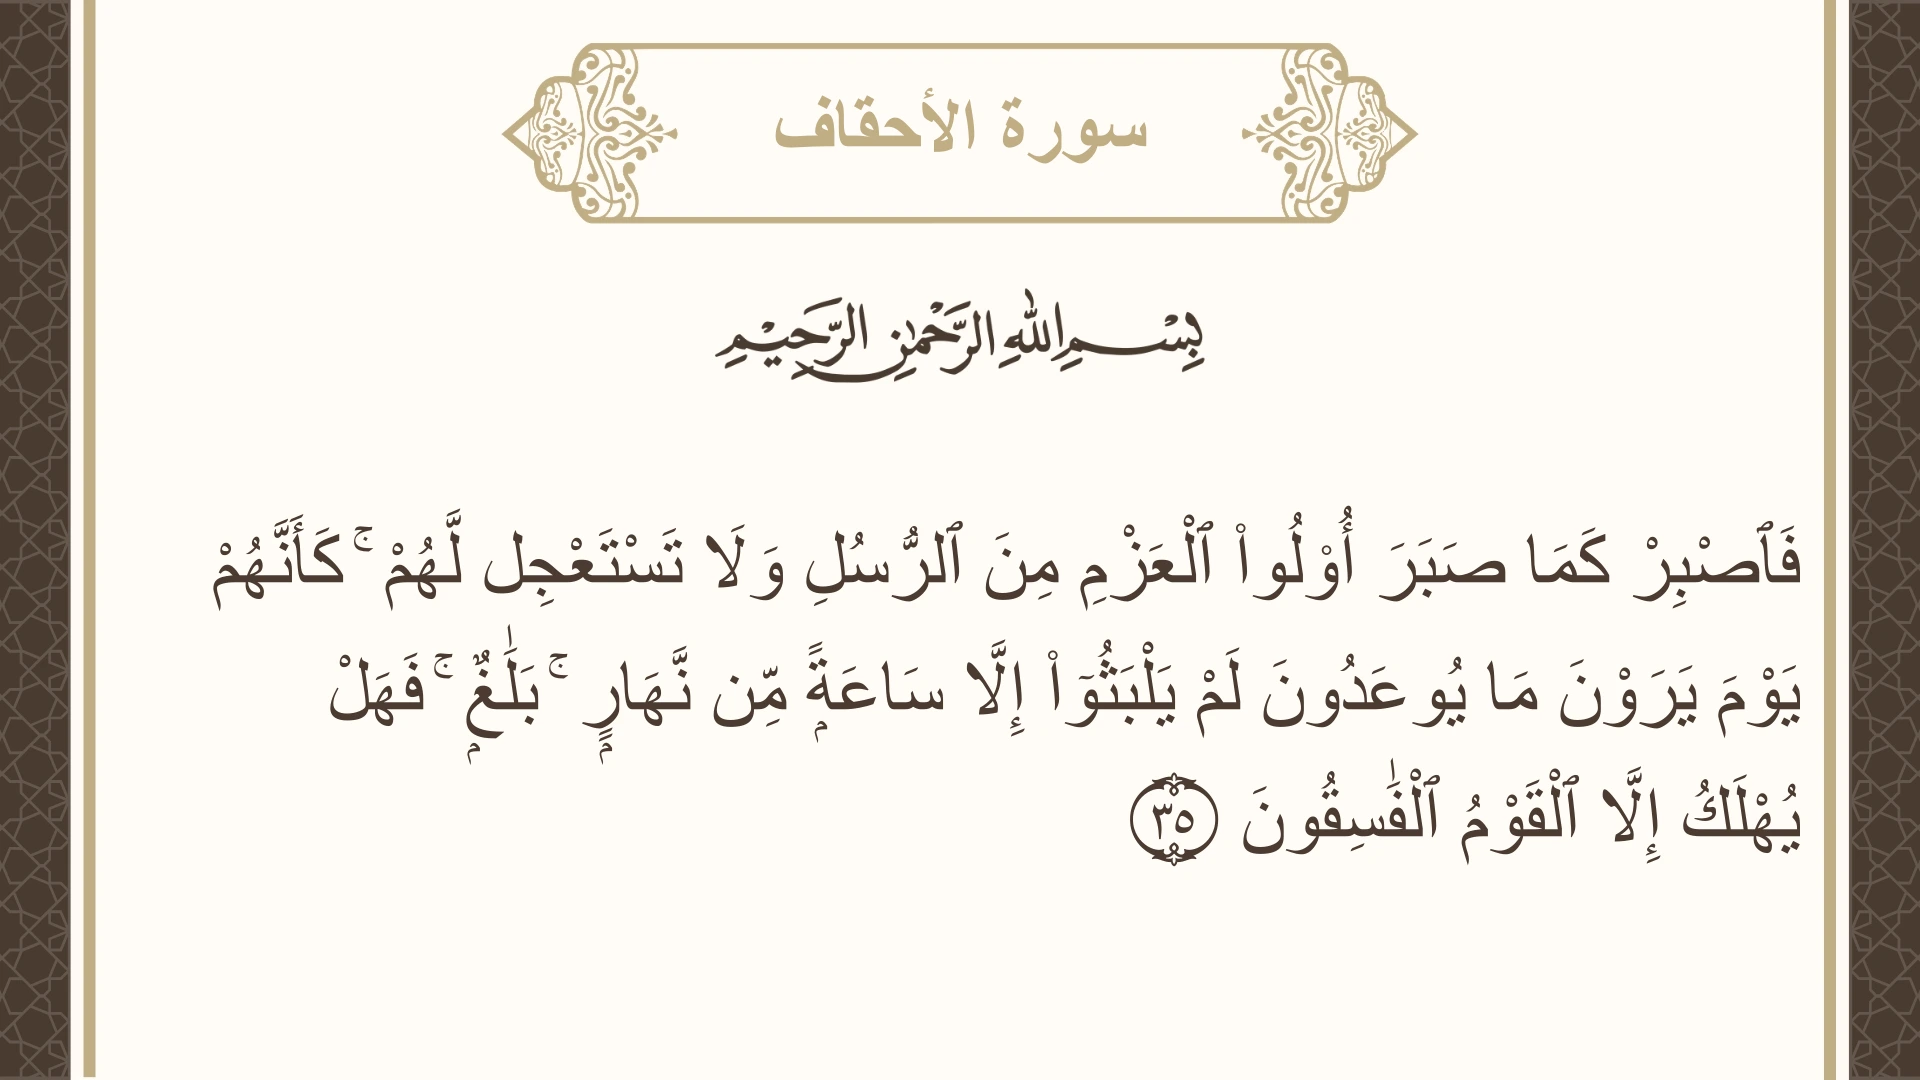 سورة الأحقاف
بِسْمِ اللهِ الرَّحْمٰنِ الرَّحِيْمِ
فَٱصْبِرْ كَمَا صَبَرَ أُوْلُوا۟ ٱلْعَزْمِ مِنَ ٱلرُّسُلِ وَلَا تَسْتَعْجِل لَّهُمْ ۚ كَأَنَّهُمْ
يَوْمَ يَرَوْنَ مَا يُوعَدُونَ لَمْ يَلْبَثُوٓا۟ إِلَّا سَاعَةًۭ مِّن نَّهَارٍۭ ۚ بَلَٰغٌۭ ۚ فَهَلْ
يُهْلَكُ إِلَّا ٱلْقَوْمُ ٱلْفَٰسِقُونَ ٣٥